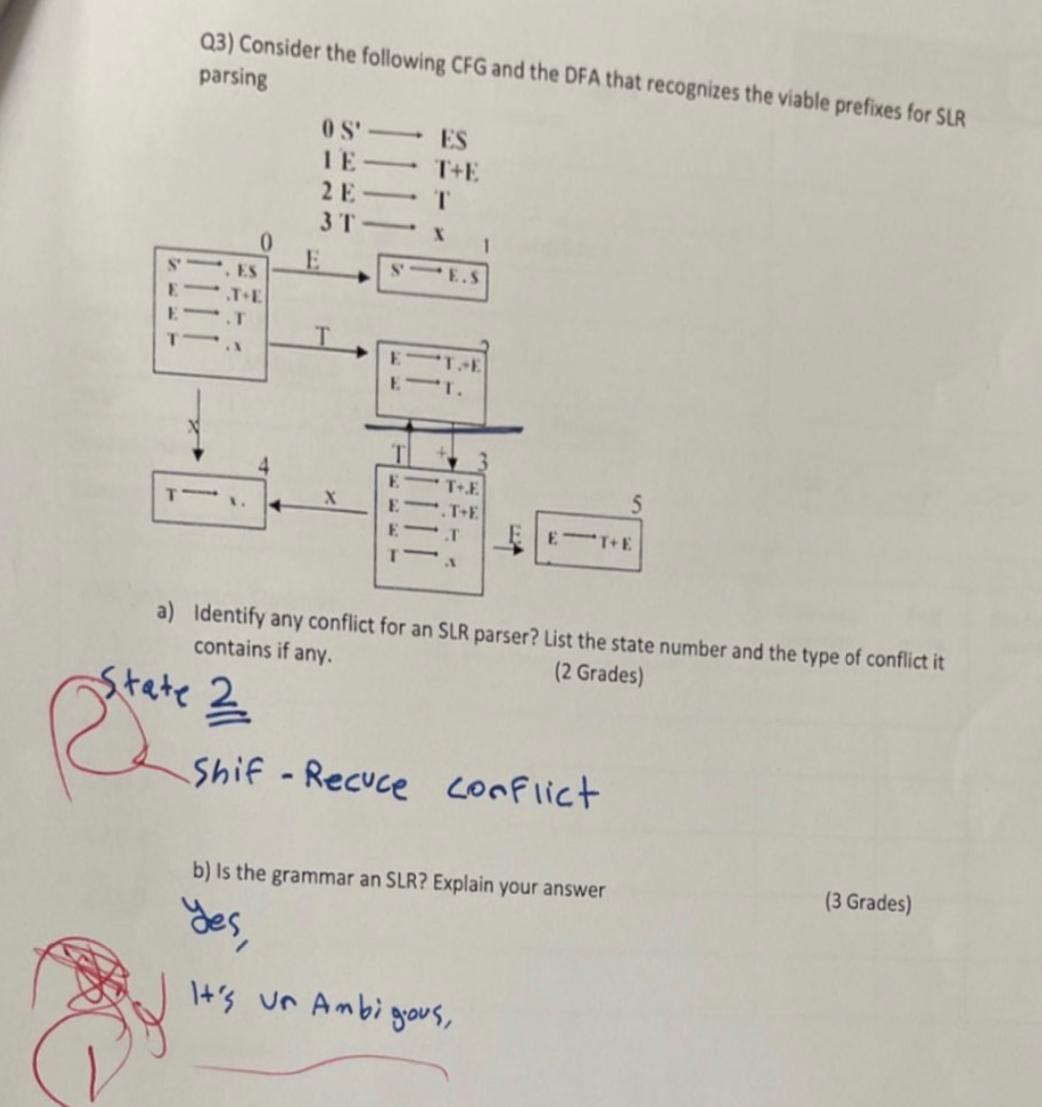 Q3) Consider the following CFG and the DFA that recognizes the viable prefixes for SLR
parsing
0 S' → ES
1 E → T+E
2 E → T
3 T → x
0
E
1
S' → . ES
E → .T+E
E → .T
T → .x
S' → E.S
T
2
E → T.+E
E → T.
x
T
+
3
4
T → x.
x
E → T+.E
E → .T+E
E → .T
T → .x
E
5
E → T+E
a) Identify any conflict for an SLR parser? List the state number and the type of conflict it
contains if any. (2 Grades)
State 2
Shif - Recuce conflict
2
b) Is the grammar an SLR? Explain your answer (3 Grades)
Yes,
It's un Ambigous,
1